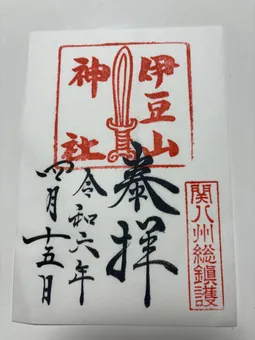 伊豆山
神社
奉拝
関八州総鎮護
令和六年
四月十五日